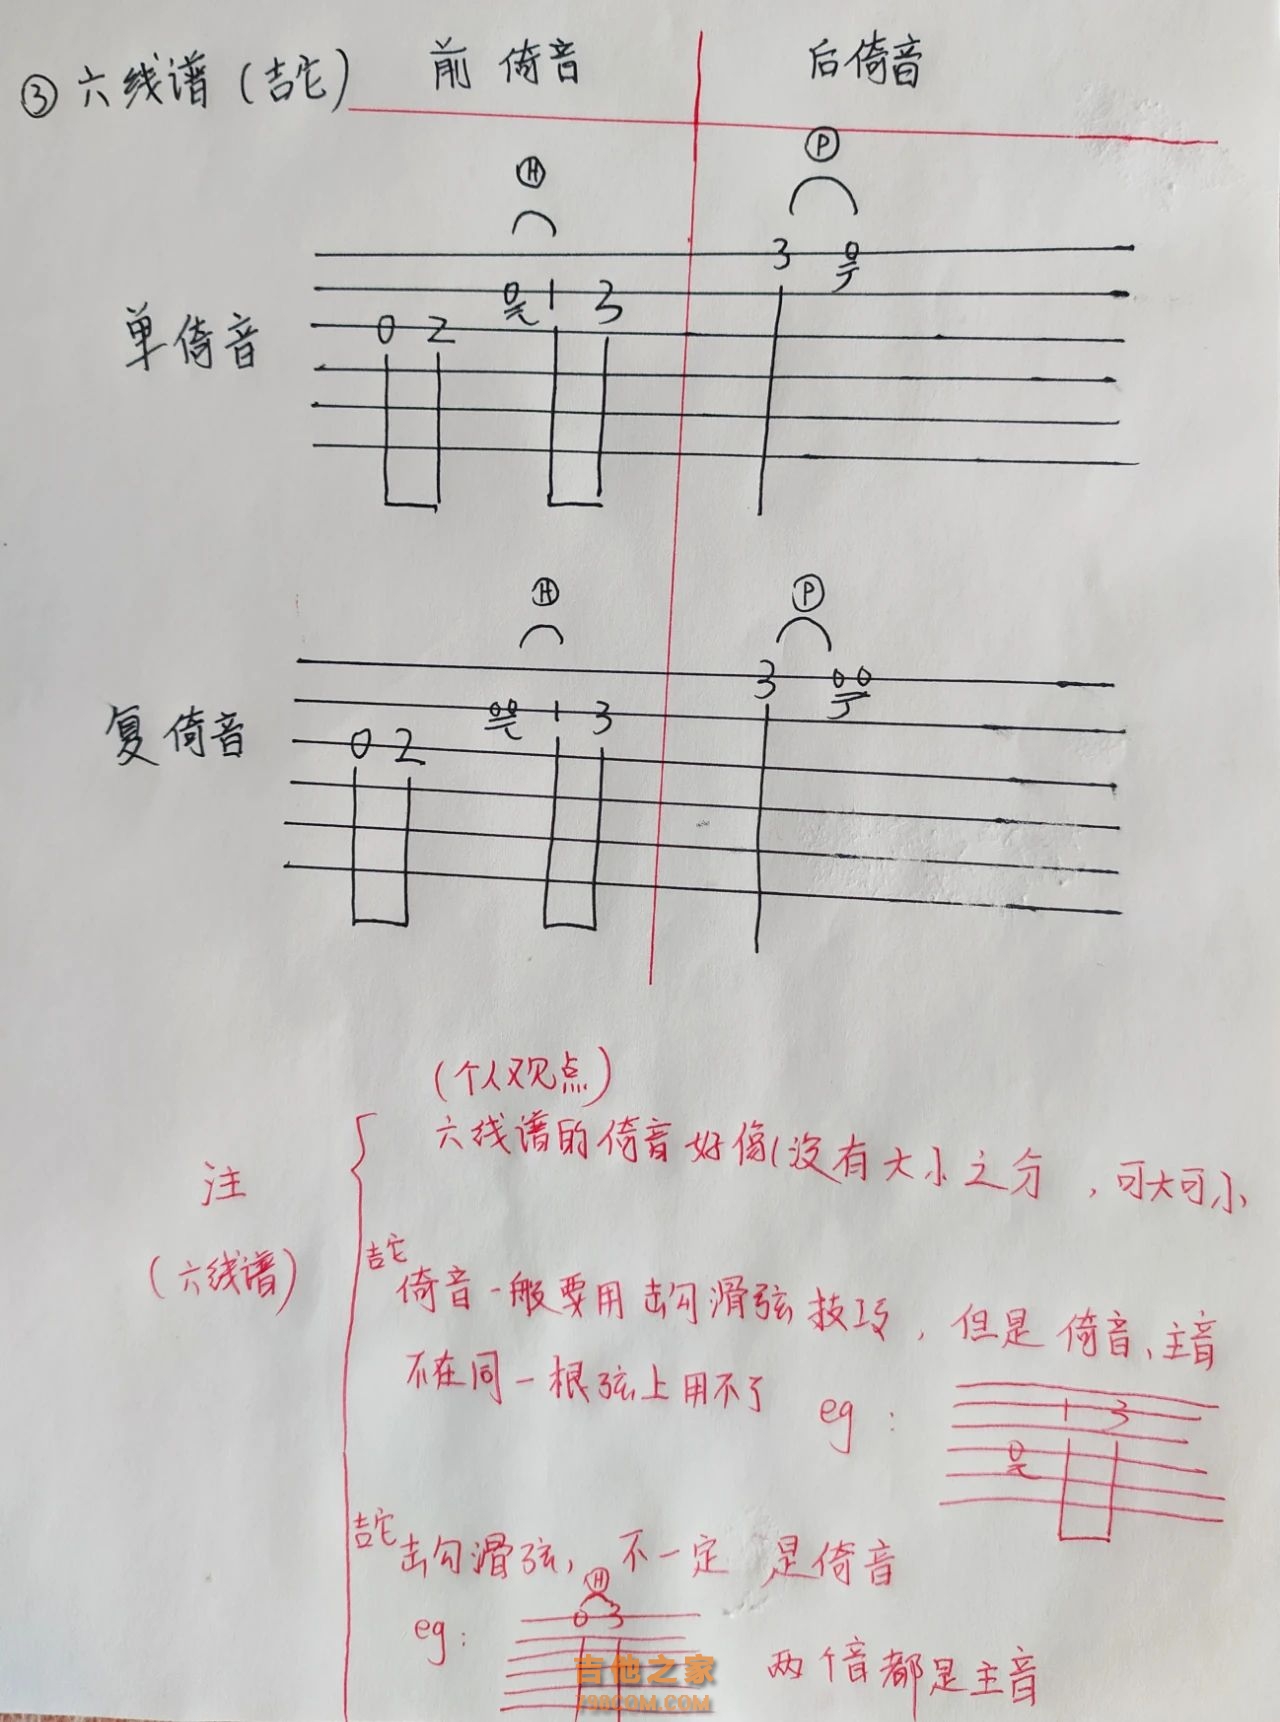 ③六线谱(吉它) 前倚音 后倚音
Ⓗ Ⓟ
3 0
0 1 3
单倚音 0 2
Ⓗ Ⓟ
3 00
00 1 3
复倚音 0 2
(个人观点)
六线谱的倚音好像没有大小之分,可大可小
注
(六线谱)
吉它
倚音一般要用击勾滑弦技巧,但是倚音、主音
不在同一根弦上用不了 eg:
1 3
0
吉它击勾滑弦,不一定是倚音
Ⓗ
0 3
eg: 两个音都是主音
吉他之家
798COM.COM